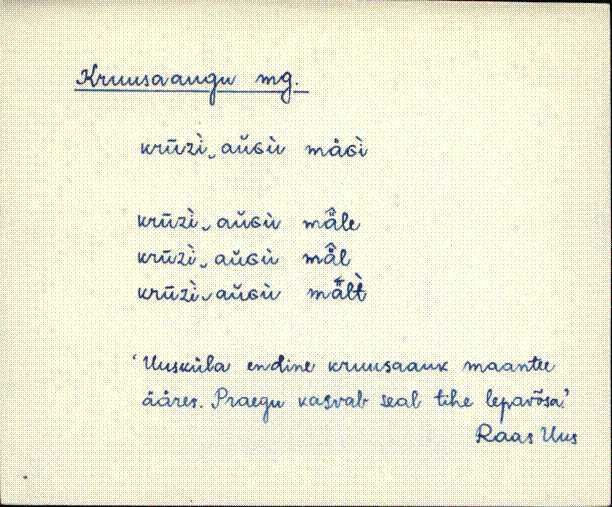 Kruusaaugu mg.
krūzì‿aŭGù mäGì
krūzì‿aŭGù mä̂le
krūzì‿aŭGù mä̂l
krūzì‿aŭGù mä̂lt̀
'Uusküla endine kruusaauk maantee
ääres. Praegu kasvab seal tihe lepavõsa.'
Raas Uus